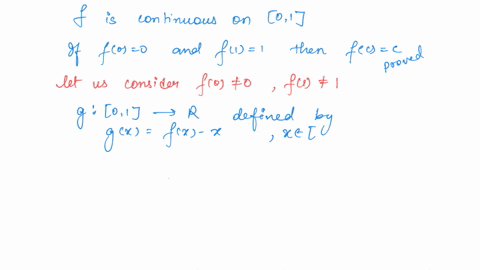 f is continuous on [0,1]
If f(0)=0 and f(1)=1 then f(c)=c
proved
let us consider f(0)≠0, f(1)≠1
g:[0,1] → R defined by
g(x) = f(x)-x , x∈[